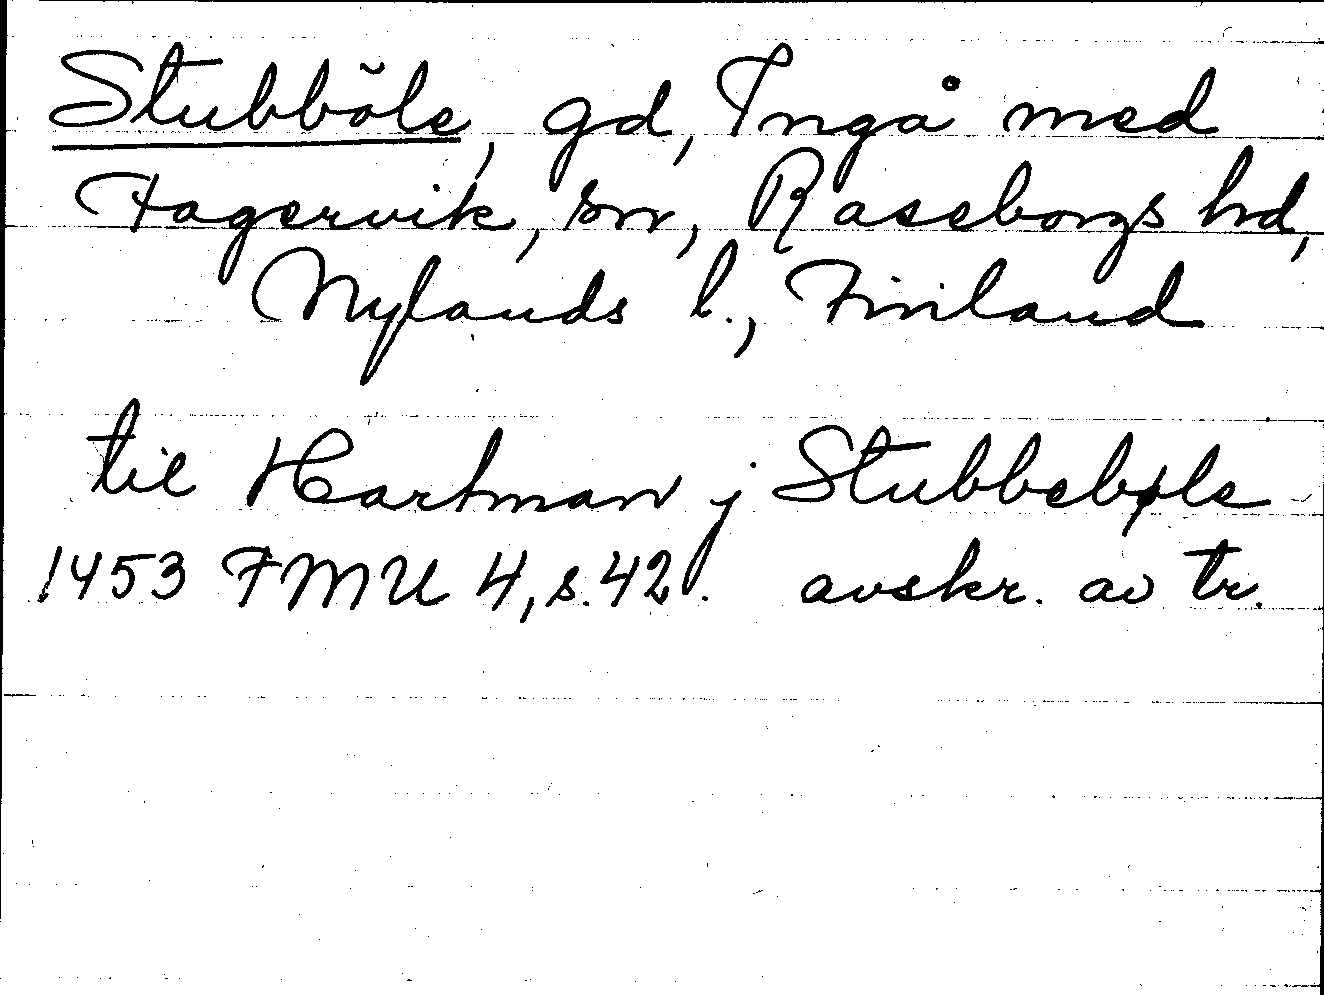 Stubböle, gd, Ingå med
Fagervik, sn, Raseborgs hd,
Nylands l., Finland
til Hartman j Stubbebøle
1453 FMU 4, s. 42. avskr. av tr.